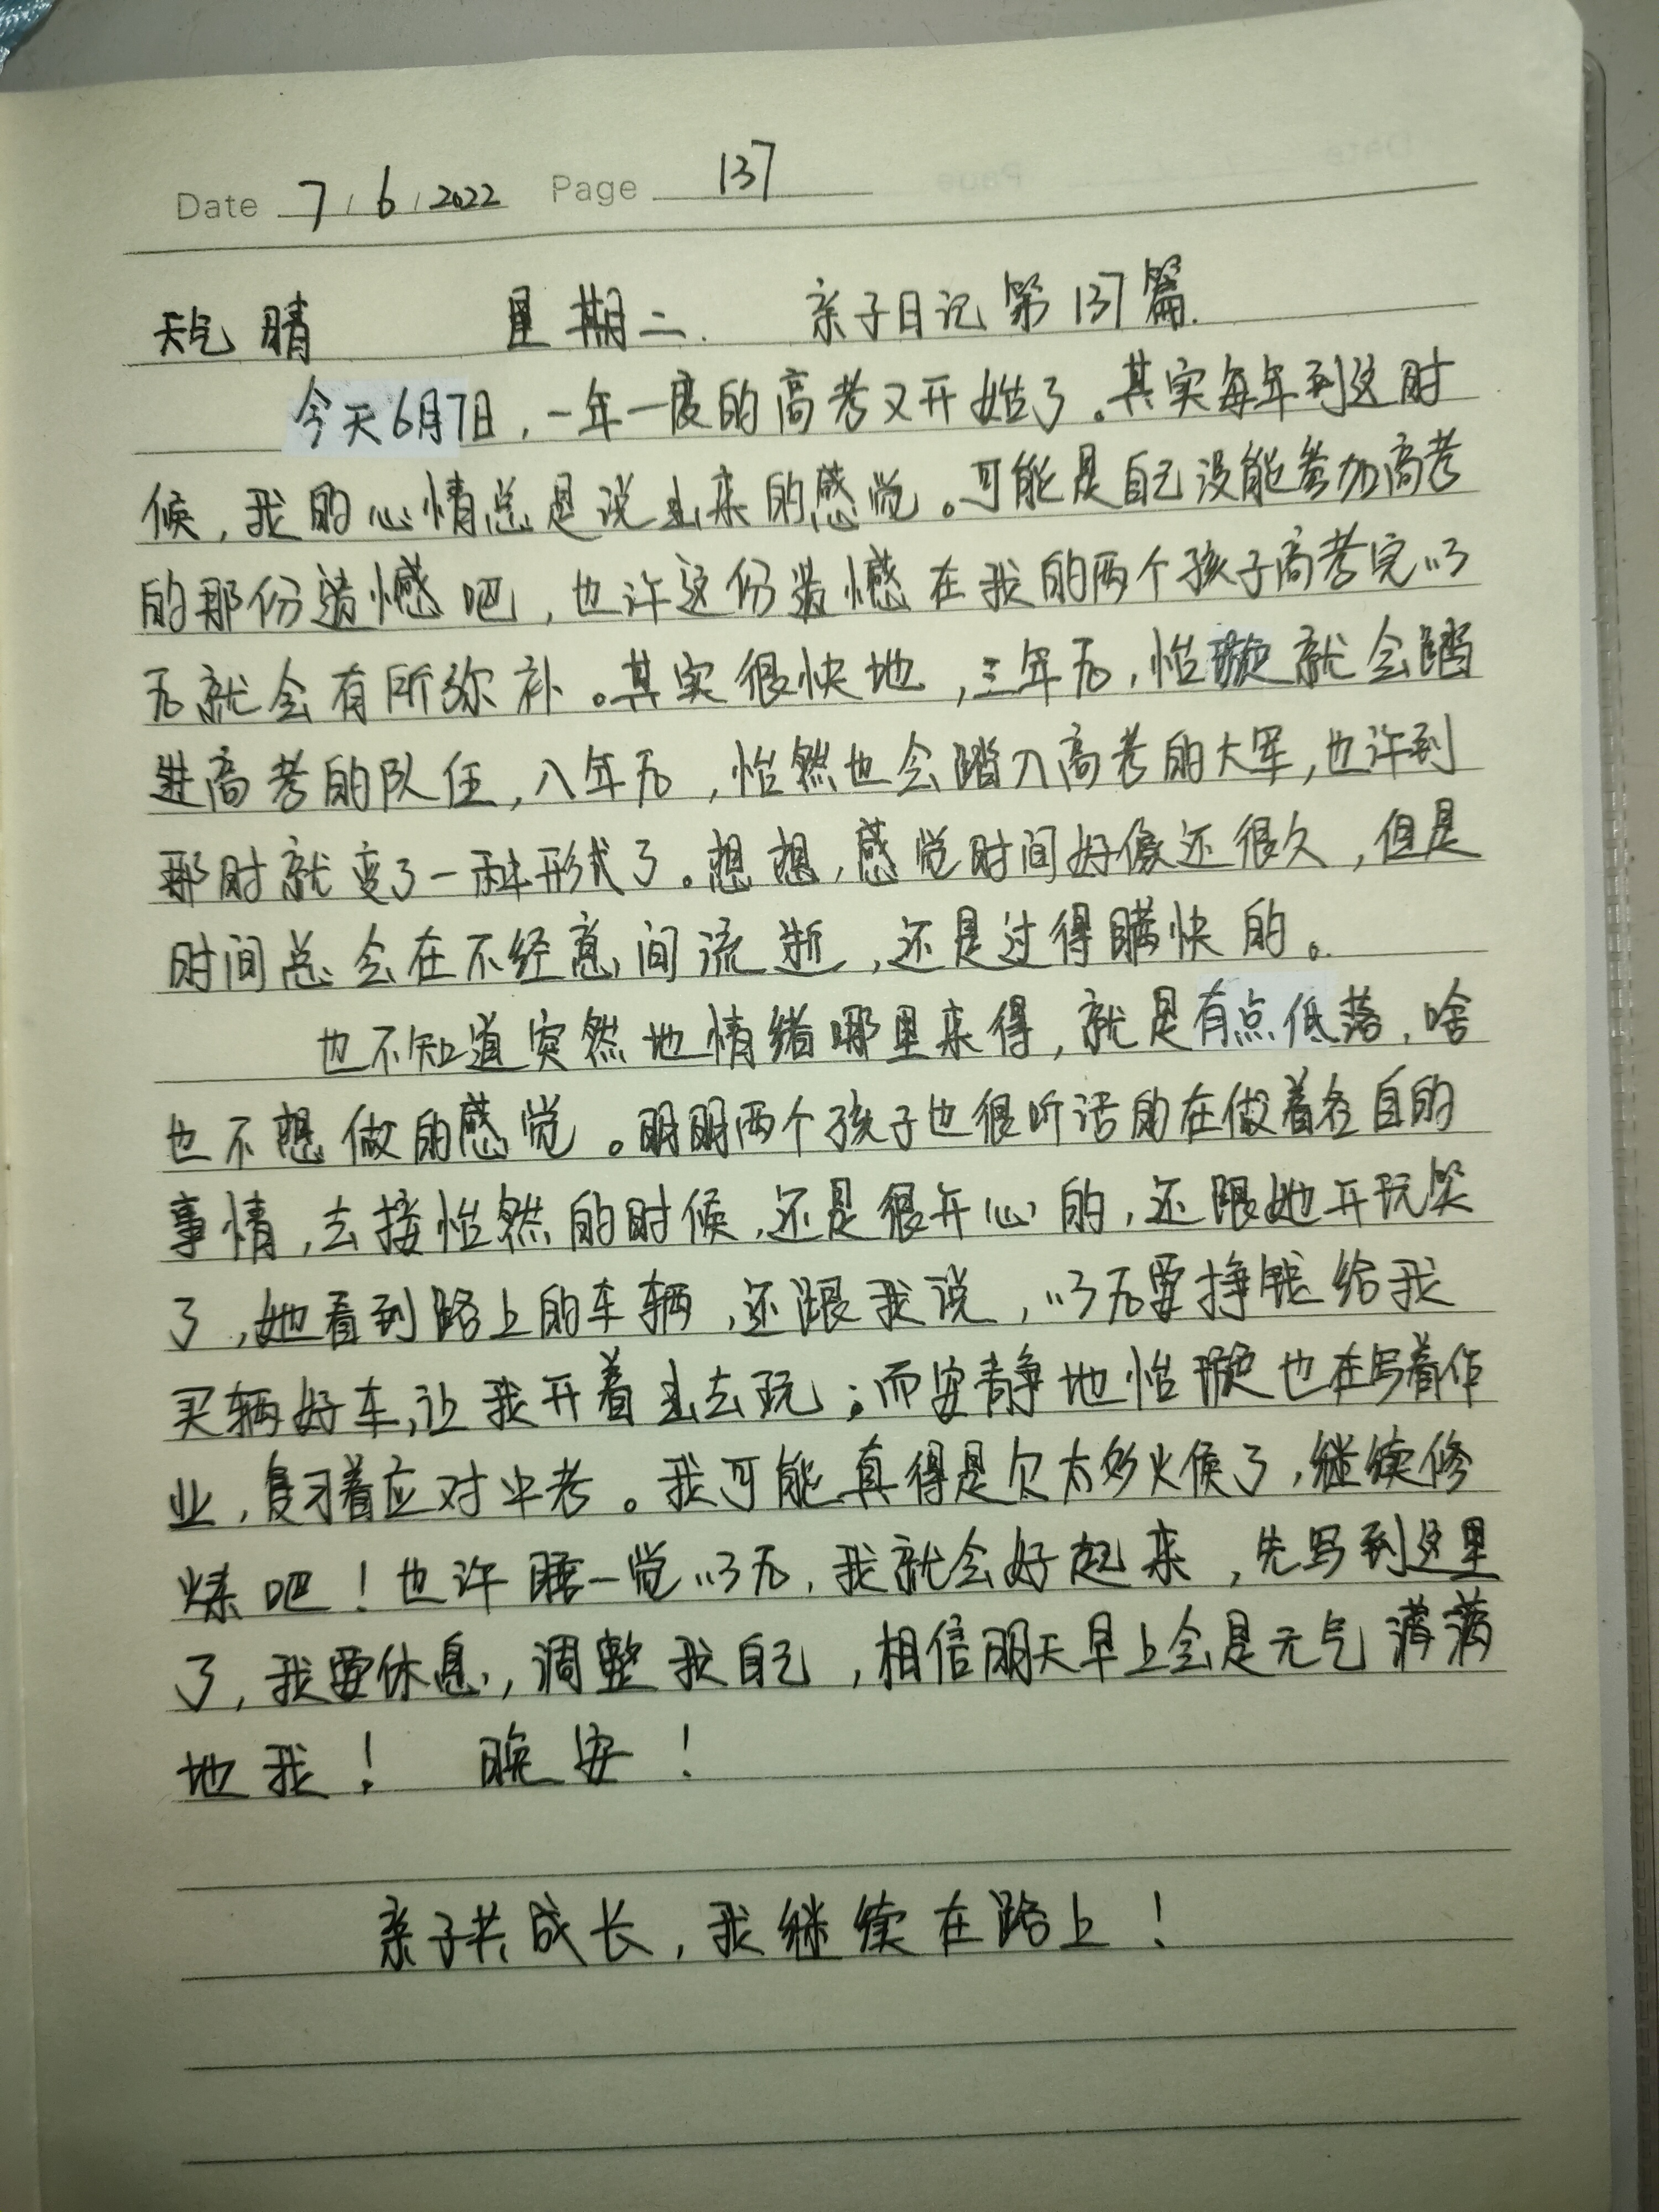 Date 7/6/2022 Page 137
天气晴 星期二. 亲子日记第137篇.
今天6月7日,一年一度的高考又开始了。其实每年到这时
候,我的心情总是说出来的感觉。可能是自己没能参加高考
的那份遗憾吧,也许这份遗憾在我的两个孩子高考完以
后就会有所弥补。其实很快地,三年后,怡璇就会踏
进高考的队伍,八年后,怡然也会踏入高考的大军,也许到
那时就变了一种形式了。想想,感觉时间好像还很久,但是
时间总会在不经意间流逝,还是过得瞒快的。
也不知道突然地情绪哪里来得,就是有点低落,啥
也不想做的感觉。明明两个孩子也很听话的在做着各自的
事情,去接怡然的时候,还是很开心的,还跟她开玩笑
了,她看到路上的车辆,还跟我说,以后要挣钱给我
买辆好车,让我开着出去玩;而安静地怡璇也在写着作
业,复习着应对中考。我可能真得是欠太多火候了,继续修
炼吧!也许睡一觉以后,我就会好起来,先写到这里
了,我要休息,调整我自己,相信明天早上会是元气满满
地我! 晚安!
亲子共成长,我继续在路上!